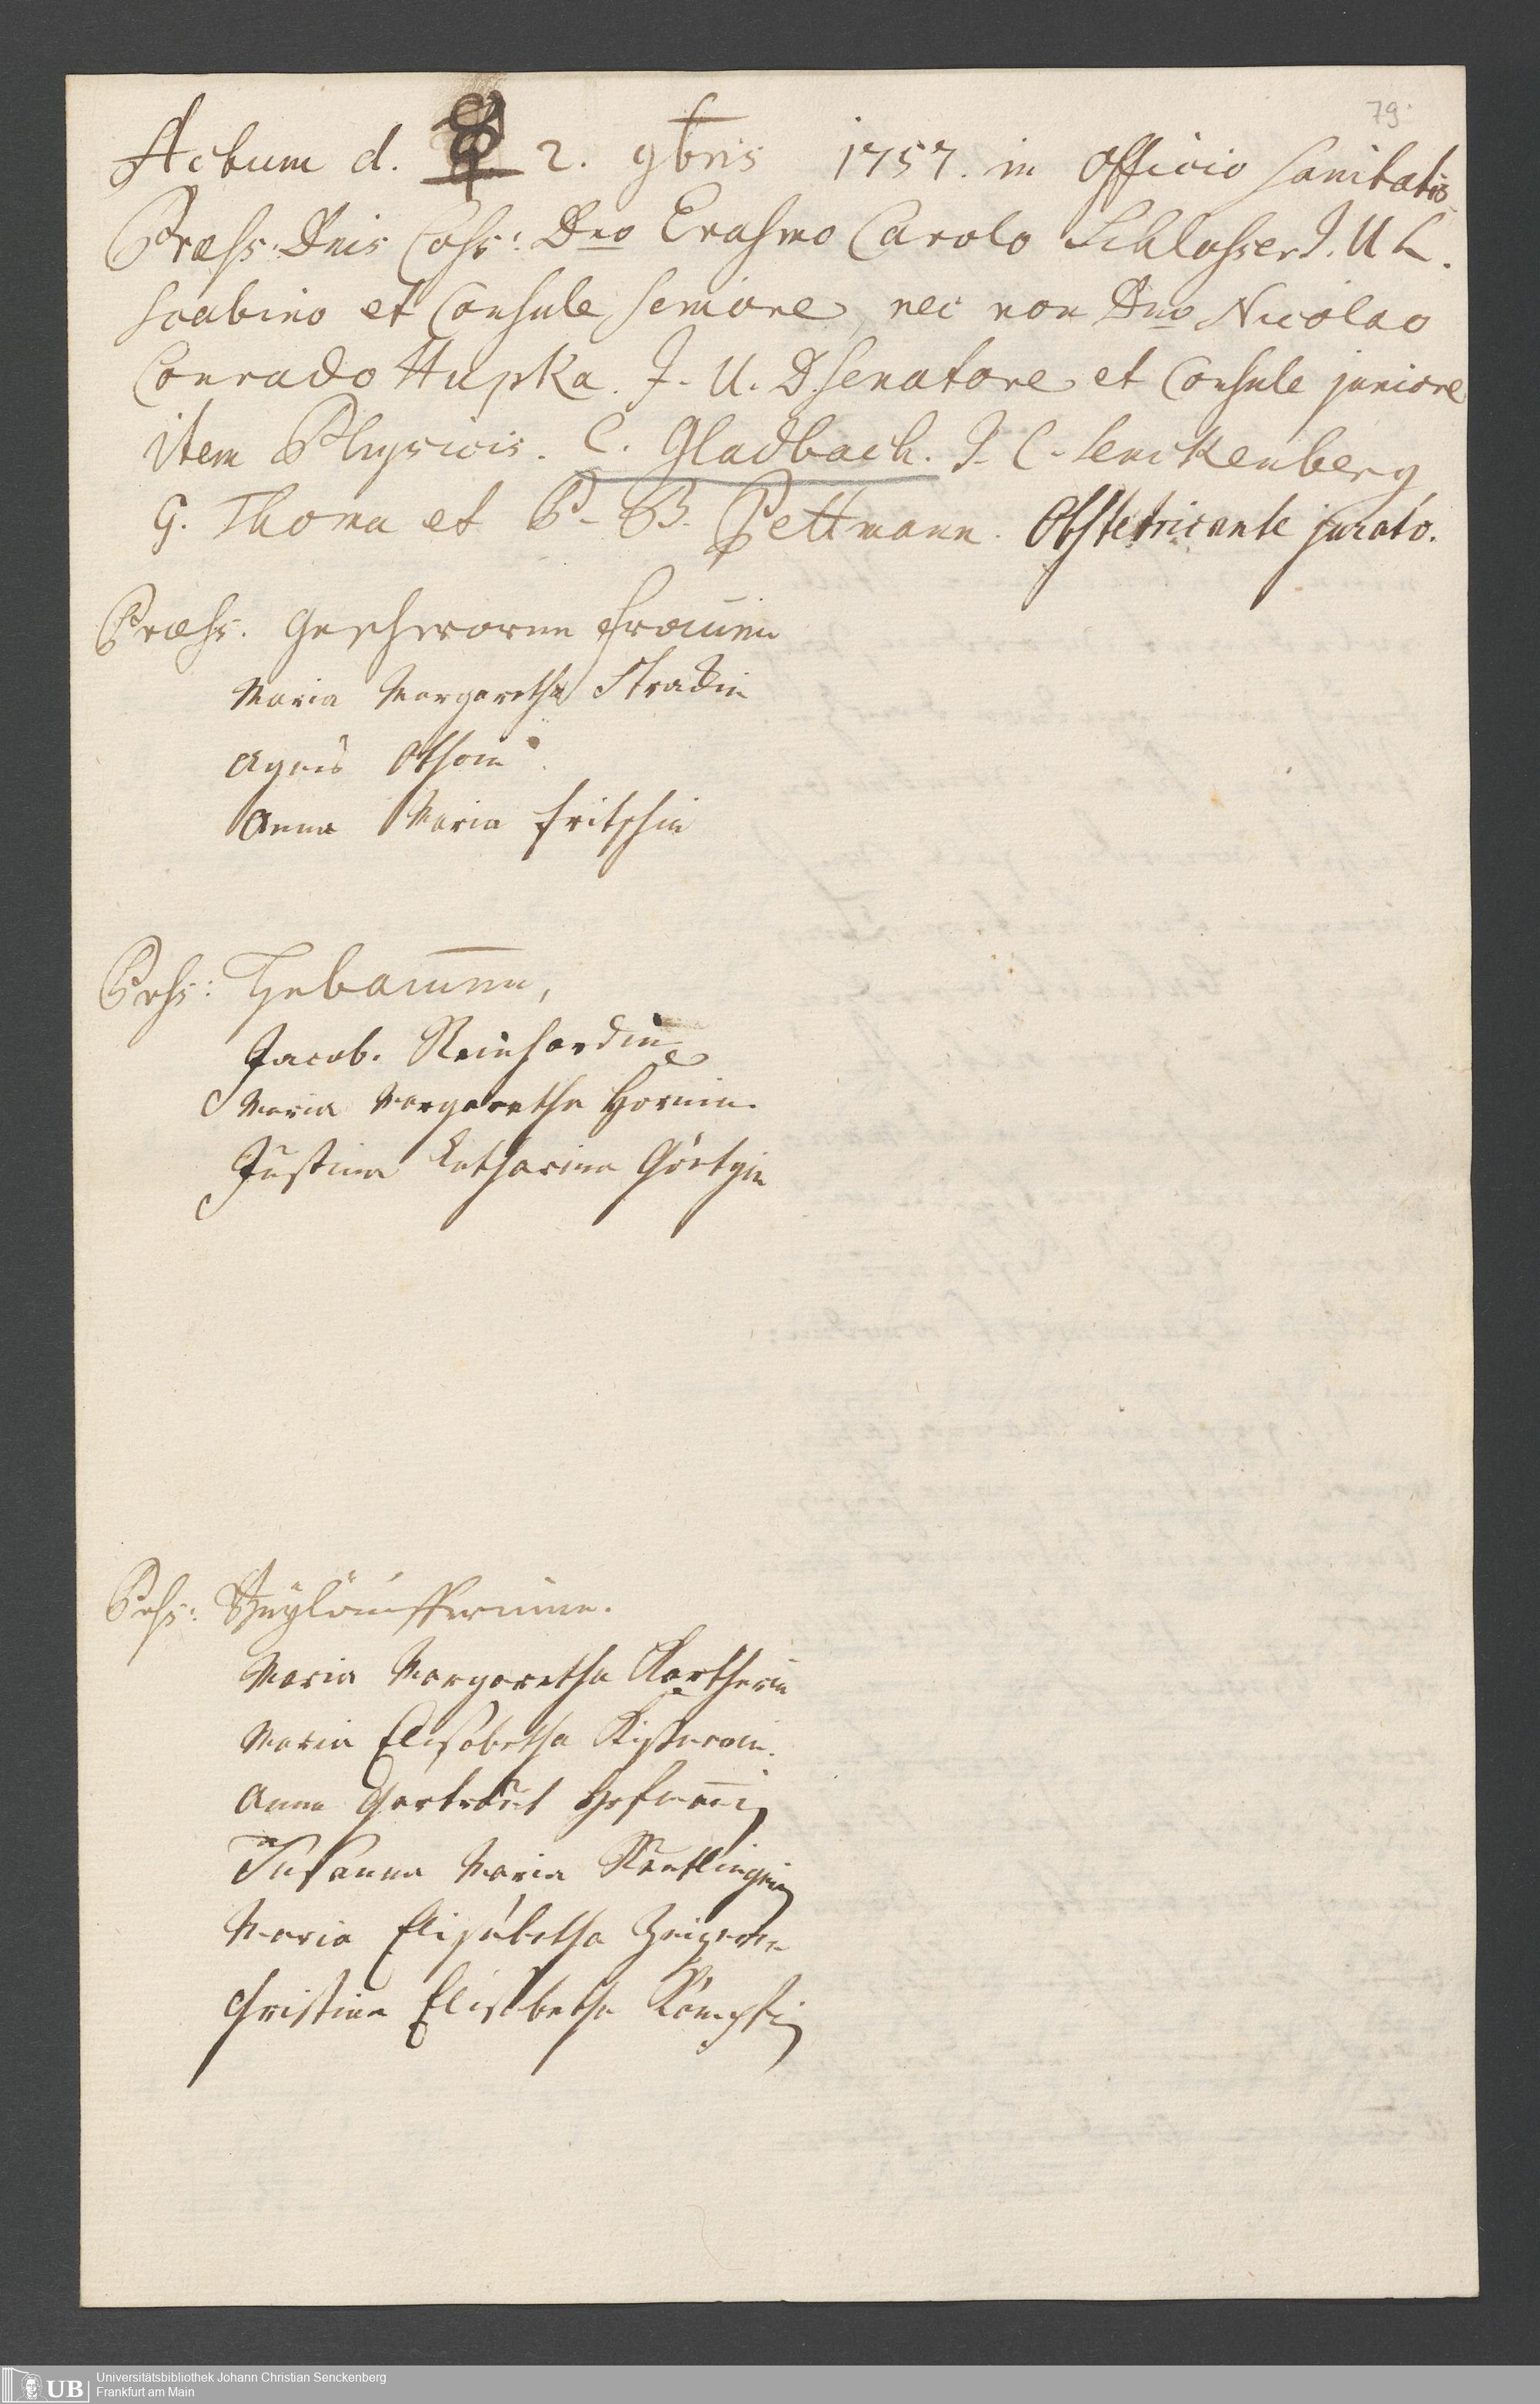 79.
Actum d. 2. 9bris 1757. in Officio Sanitatis
Præss. Dnis Coss: Dno Erasmo Carolo Schlosser J. U L.
Scabino et Consule Seniore, nec non Dno Nicolao
Conrado Hupka. J. U. D Senatore et Consule juniore
item Physicis. C. Gladbach. J. C. Senckenberg
G. Thoma et P. B. Pettmann. Obstetricante jurato.
Præss. Geschworne Frauen
Maria Margaretha Stradin
Agnes Othoin
Anna Maria Fritschin
Prss: Hebammen,
Jacob. Reinhardin
Maria Margaretha Hornin.
Justina Catharina Görtzin
Prss: Beyläufferinnen.
Maria Margaretha
Maria Elisabetha
Anna Gertraut Hofmännin
Susanna Maria Reutlingerin
Maria Elisabetha
Christina Elisabetha Kämpfin
UB
Universitätsbibliothek Johann Christian Senckenberg
Frankfurt am Main